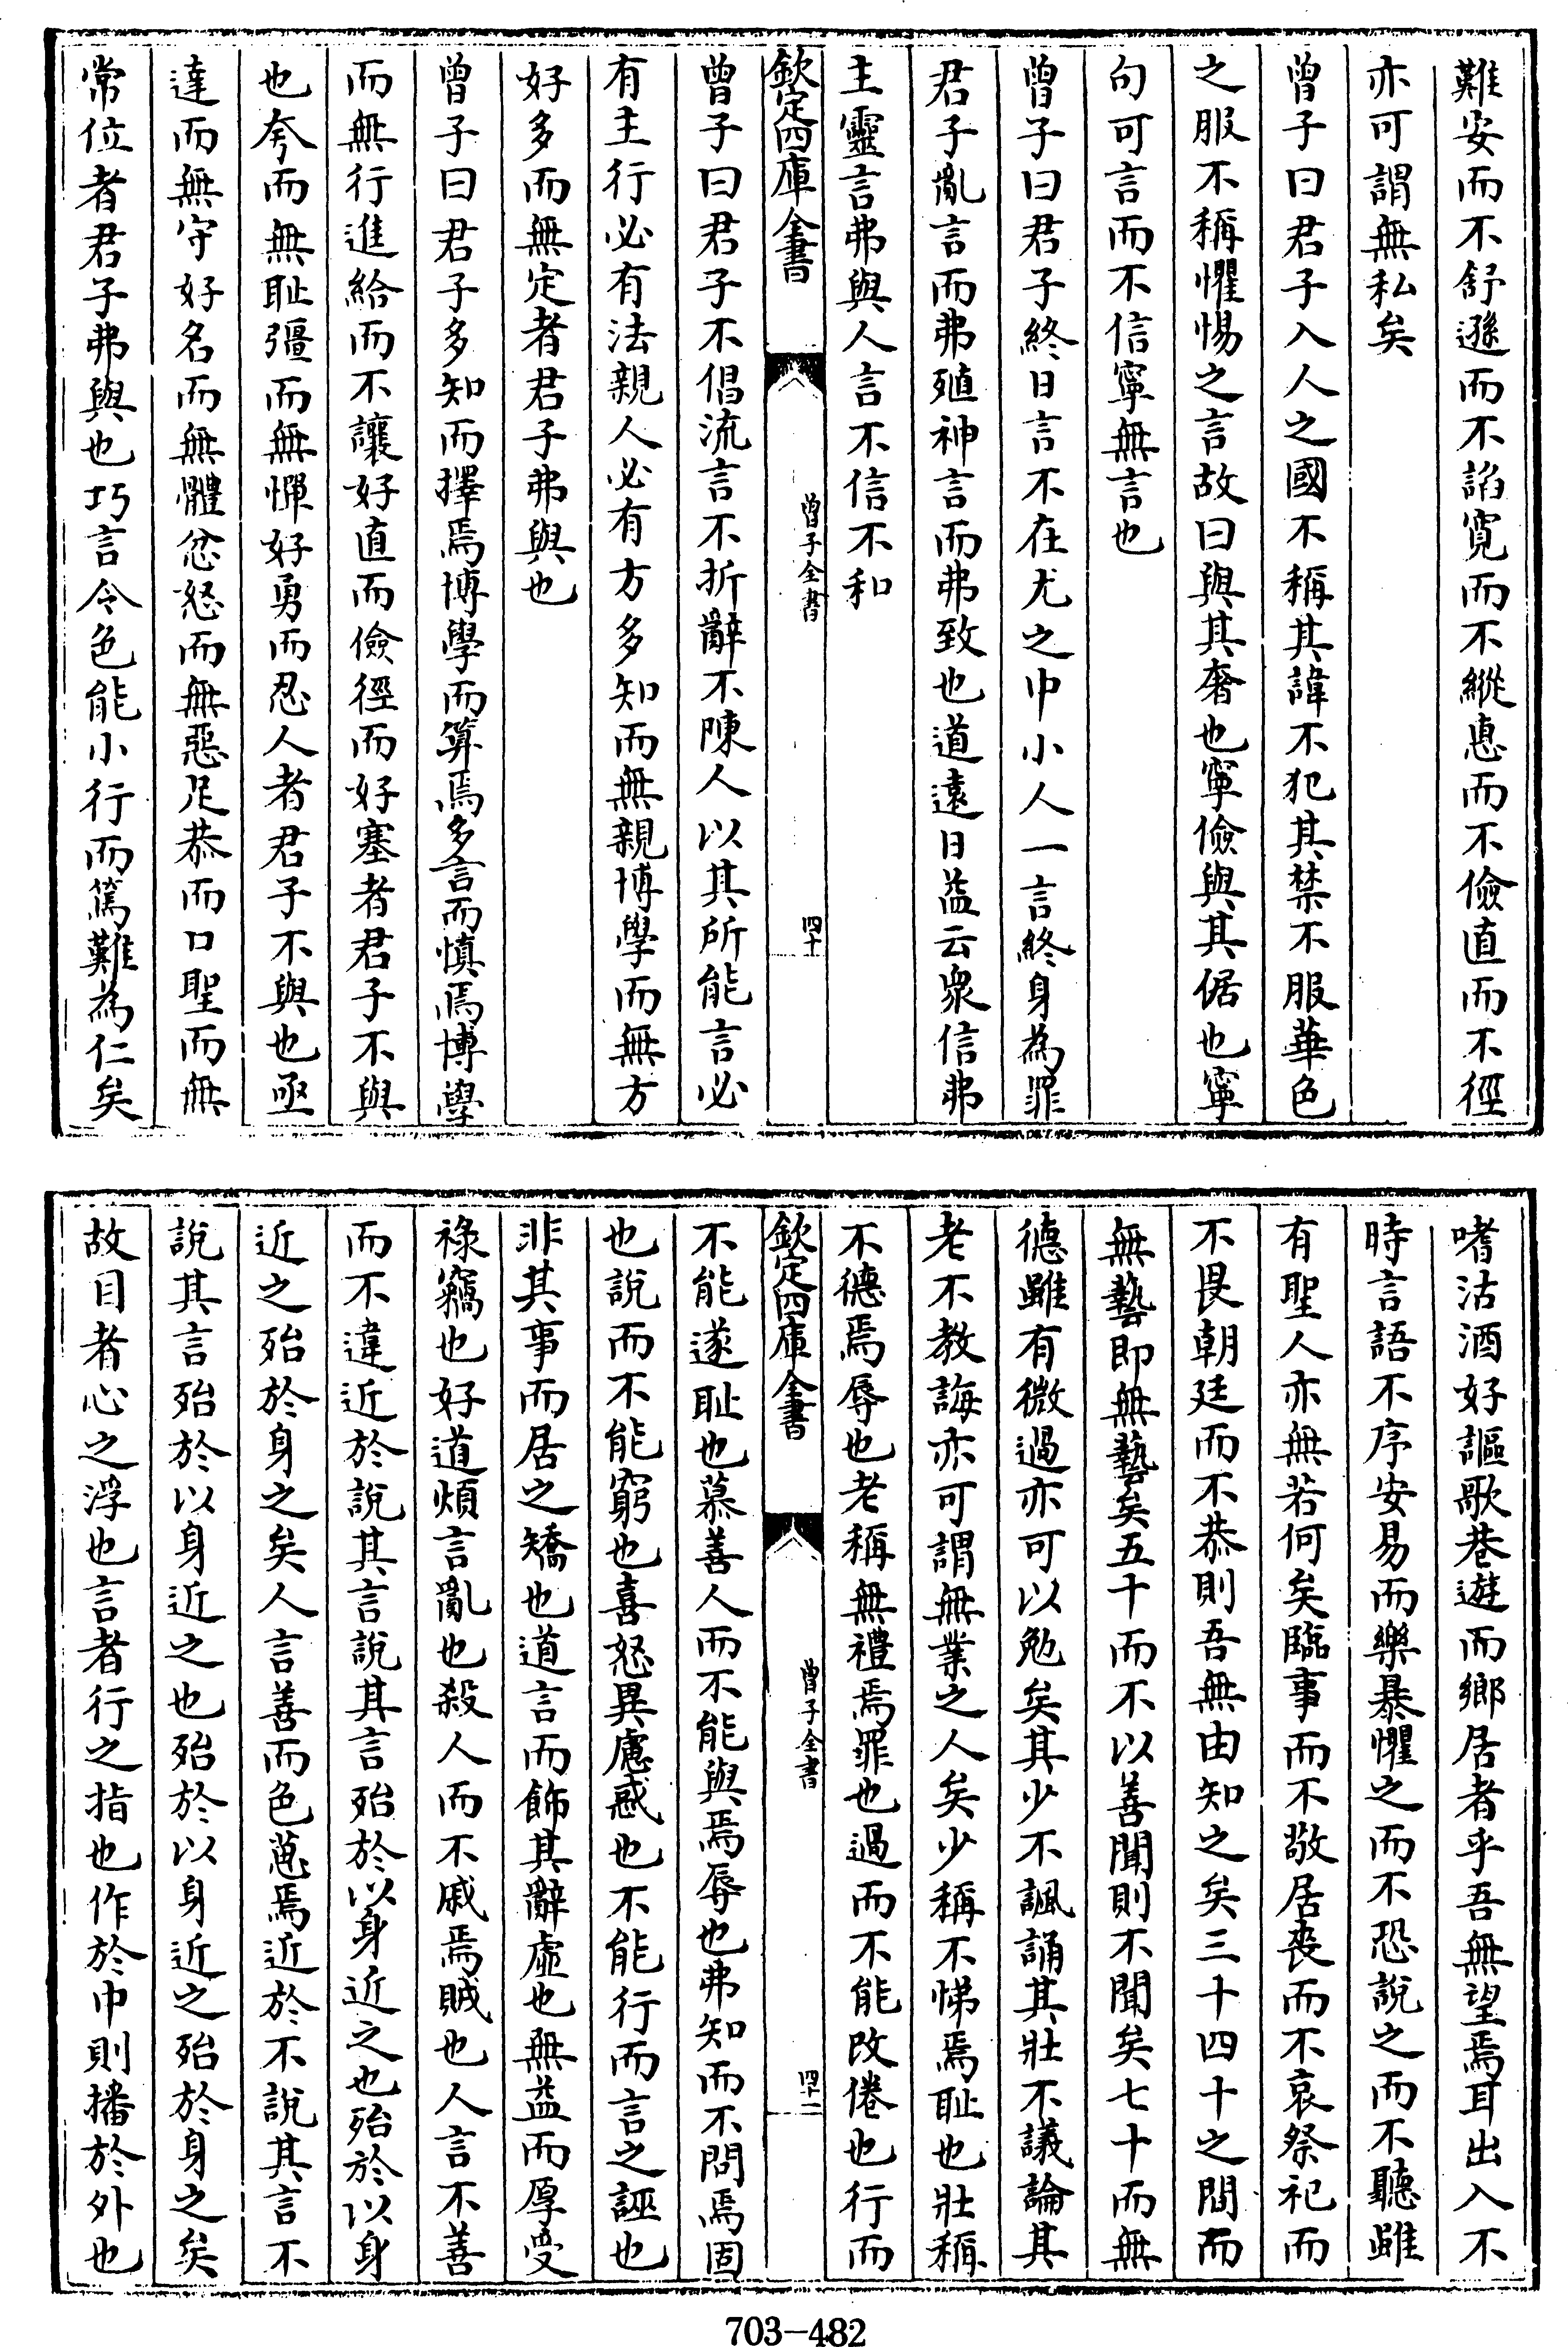 難安而不舒遜而不諂寛而不縱惠而不儉直而不徑
亦可謂無私矣
曾子曰君子入人之國不稱其諱不犯其禁不服華色
之服不稱懼惕之言故曰與其奢也寧儉與其倨也寧
句可言而不信寧無言也
曾子曰君子終日言不在尤之中小人一言終身為罪
君子亂言而弗殖神言而弗致也道逺日益云衆信弗
主靈言弗與人言不信不和
欽定四庫全書
曾子全書
四十
曾子曰君子不倡流言不折辭不陳人以其所能言必
有主行必有法親人必有方多知而無親博學而無方
好多而無定者君子弗與也
曾子曰君子多知而擇焉博學而算焉多言而慎焉博學
而無行進給而不讓好直而儉徑而好塞者君子不與
也夸而無恥彊而無憚好勇而忍人者君子不與也亟
達而無守好名而無體忿怒而無惡足恭而口聖而無
常位者君子弗與也巧言令色能小行而篤難為仁矣
嗜沽酒好謳歌巷遊而鄉居者乎吾無望焉耳出入不
時言語不序安易而樂暴懼之而不恐說之而不聽雖
有聖人亦無若何矣臨事而不敬居喪而不哀祭祀而
不畏朝廷而不恭則吾無由知之矣三十四十之間而
無藝即無藝矣五十而不以善聞則不聞矣七十而無
德雖有微過亦可以勉矣其少不諷誦其壯不議論其
老不教誨亦可謂無業之人矣少稱不悌焉恥也壯稱
不德焉辱也老稱無禮焉罪也過而不能改倦也行而
欽定四庫全書
曾子全書
四十二
不能遂恥也慕善人而不能與焉辱也弗知而不問焉固
也說而不能窮也喜怒異慮惑也不能行而言之誣也
非其事而居之矯也道言而飾其辭虛也無益而厚受
祿竊也好道煩言亂也殺人而不戚焉賊也人言不善
而不違近於說其言說其言殆於以身近之也殆於以身
近之殆於身之矣人言善而色葸焉近於不說其言不
說其言殆於以身近之也殆於以身近之殆於身之矣
故目者心之浮也言者行之指也作於中則播於外也
703-482